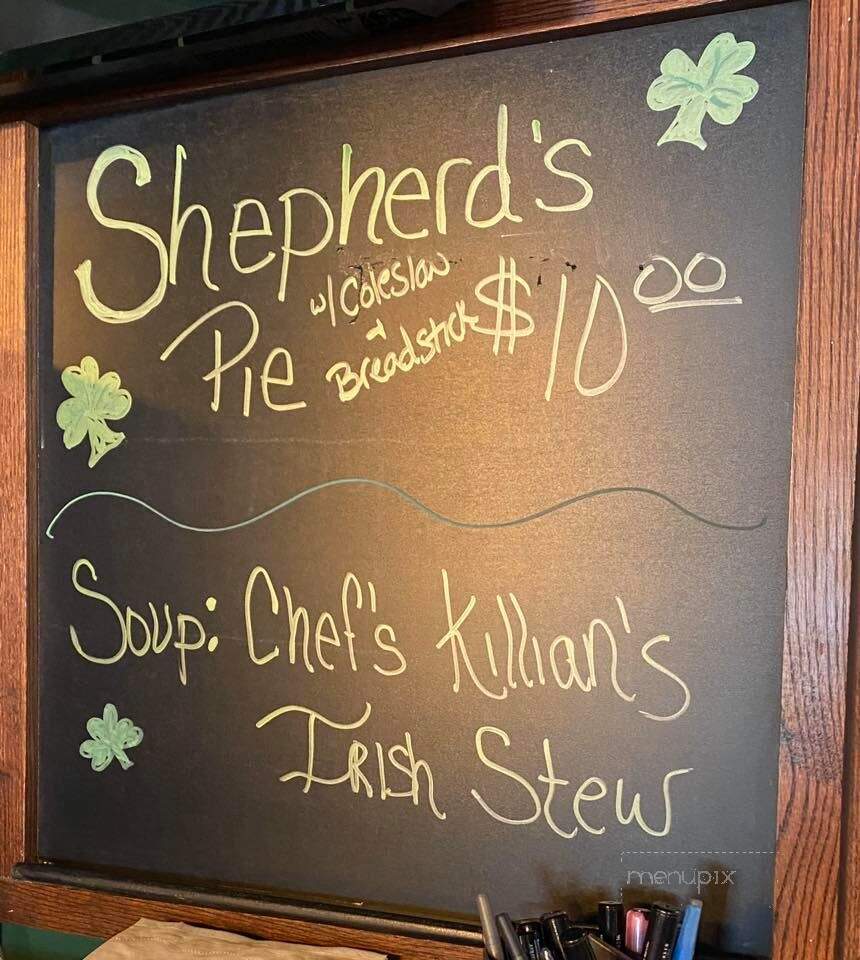 Shepherd's
Pie w/ Coleslaw + Breadstick $10.00
Soup: Chef's Killian's
Irish Stew
menupix